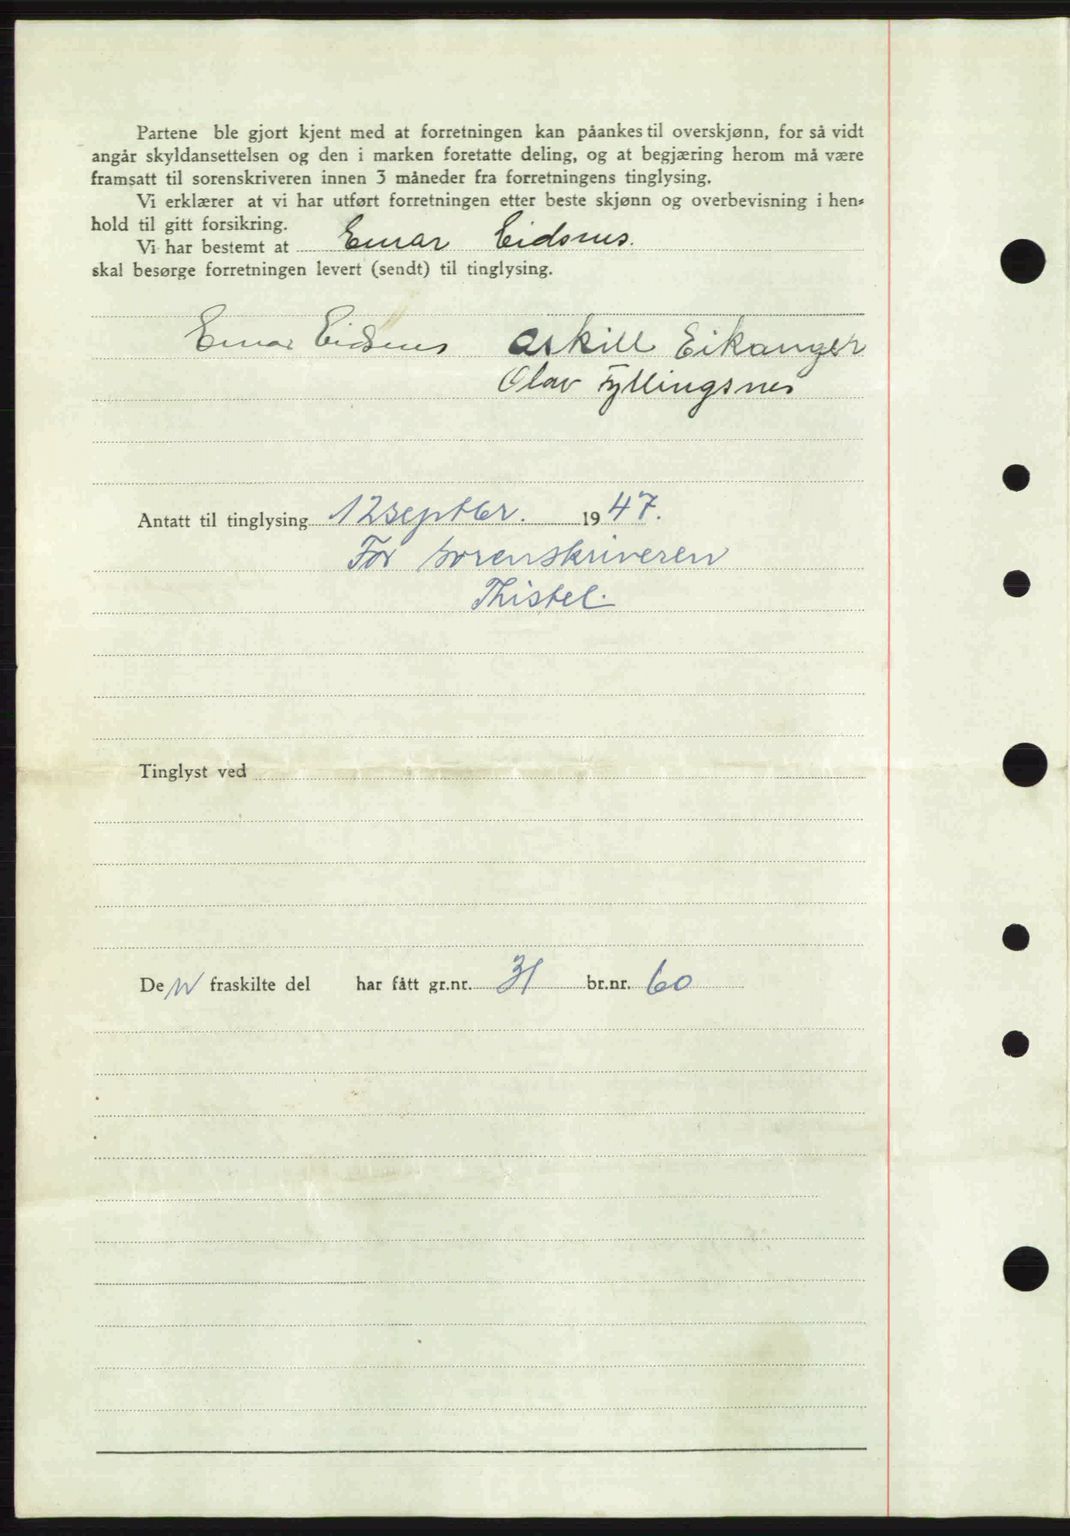 Partene ble gjort kjent med at forretningen kan påankes til overskjønn, for så vidt
angår skyldansettelsen og den i marken foretatte deling, og at begjæring herom må være
framsatt til sorenskriveren innen 3 måneder fra forretningens tinglysing.
Vi erklærer at vi har utført forretningen etter beste skjønn og overbevisning i hen-
hold til gitt forsikring.
Vi har bestemt at Einar Eidsnes.
skal besørge forretningen levert (sendt) til tinglysing.
Einar Eidsnes Askill Eikanger
Olav Fyllingsnes
Antatt til tinglysing 12 septber. 1947.
For sorenskriveren
Thistel.
Tinglyst ved
De n fraskilte del har fått gr.nr. 31 br.nr. 60